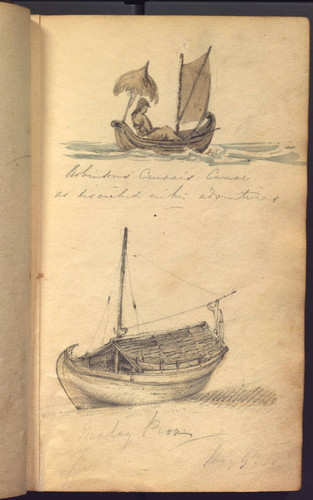 Robinson Crusoe's Canoe
as described in his adventures
Malay Proa
May 9th